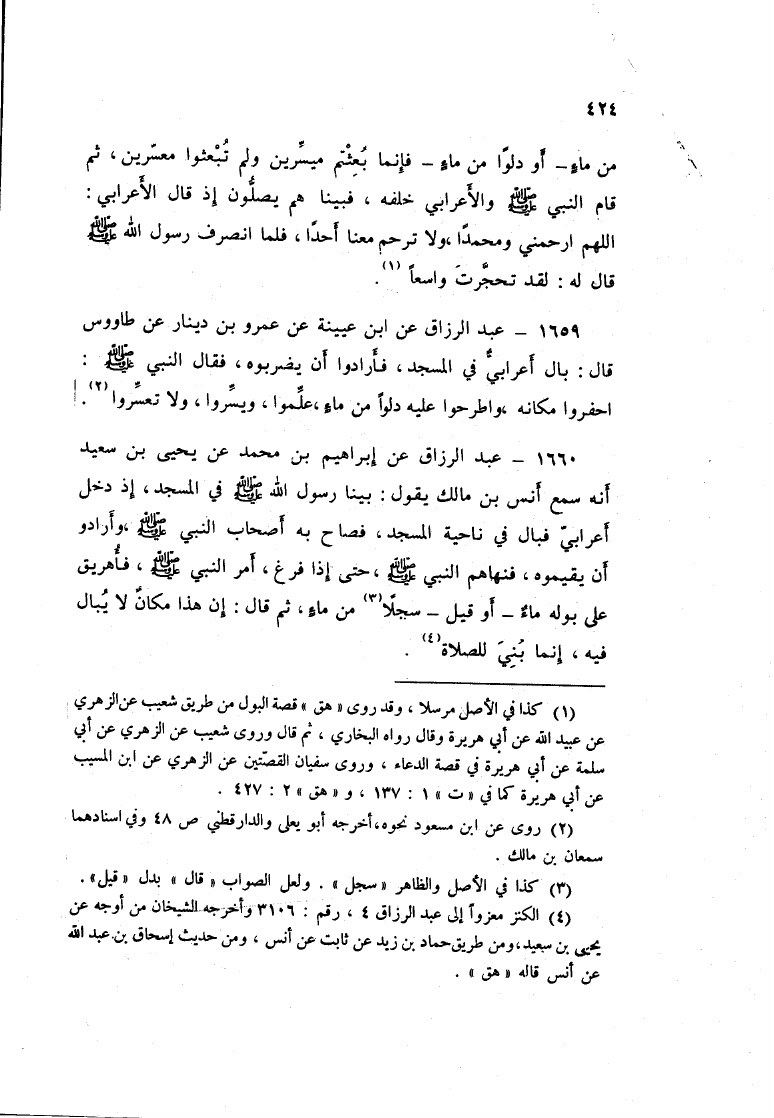 ٤٢٤
من ماءٍ – أو دلوًا من ماءٍ – فإنما بُعِثْتم ميسِّرين ولم تُبْعثوا معسّرين ، ثم
قام النبي ﷺ والأعرابي خلفه ، فبينا هم يصلُّون إذ قال الأعرابي :
اللهم ارحمني ومحمدًا ،ولا ترحم معنا أحدًا ، فلما انصرف رسول الله ﷺ
قال له : لقد تحجَّرتَ واسعاً (١) .
١٦٥٩ – عبد الرزاق عن ابن عيينة عن عمرو بن دينار عن طاووس
قال : بال أعرابيٌّ في المسجد ، فأرادوا أن يضربوه ، فقال النبي ﷺ :
احفروا مكانه ،واطرحوا عليه دلواً من ماءٍ ،علِّموا ، ويسِّروا ، ولا تعسِّروا (٢) .
١٦٦٠ – عبد الرزاق عن إبراهيم بن محمد عن يحيى بن سعيد
أنه سمع أنس بن مالك يقول : بينا رسول الله ﷺ في المسجد ، إذ دخل
أعرابيّ فبال في ناحية المسجد ، فصاح به أصحاب النبي ﷺ ،وأرادو
أن يقيموه ، فنهاهم النبي ﷺ ،حتى إذا فرغ ، أمر النبي ﷺ ، فأُهريق
على بوله ماءٌ – أو قيل – سجلًا (٣) من ماءٍ ، ثم قال : إن هذا مكانٌ لا يُبال
فيه ، إنما بُنِيَ للصلاة (٤) .
(١) كذا في الأصل مرسلا ، وقد روى « هق » قصة البول من طريق شعيب عن الزهري
عن عبيد الله عن أبي هريرة وقال رواه البخاري ، ثم قال وروى شعيب عن الزهري عن أبي
سلمة عن أبي هريرة في قصة الدعاء ، وروى سفيان القصّتين عن الزهري عن ابن المسيب
عن أبي هريرة كما في « ت » ١ : ١٣٧ ، و « هق » ٢ : ٤٢٧ .
(٢) روى عن ابن مسعود نحوه،أخرجه أبو يعلى والدارقطني ص ٤٨ وفي اسنادهما
سمعان بن مالك .
(٣) كذا في الأصل والظاهر « سجل » . ولعل الصواب « قال » بدل « قيل» .
(٤) الكنز معزواً إلى عبد الرزاق ٤ ، رقم : ٣١٠٦ وأخرجه الشيخان من أوجه عن
يحيى بن سعيد،ومن طريق حماد بن زيد عن ثابت عن أنس ، ومن حديث إسحاق بن عبد الله
عن أنس قاله « هق » .